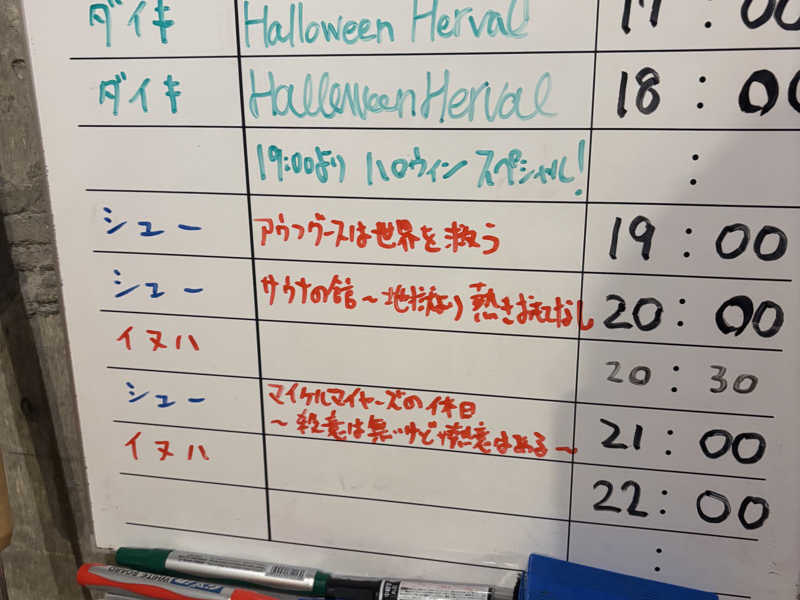 ダイキ Halloween Herval 17:00
ダイキ Halleween Herval 18:00
19:00より ハロウィン スペシャル! :
シュー アウフグースは世界を救う 19:00
シュー サウナの館〜地獄より熱きおもてなし 20:00
イヌハ 20:30
シュー マイケルマイヤーズの休日 21:00
〜殺意は無いけど熱意はある〜
イヌハ
22:00
:
WHITE BOARD